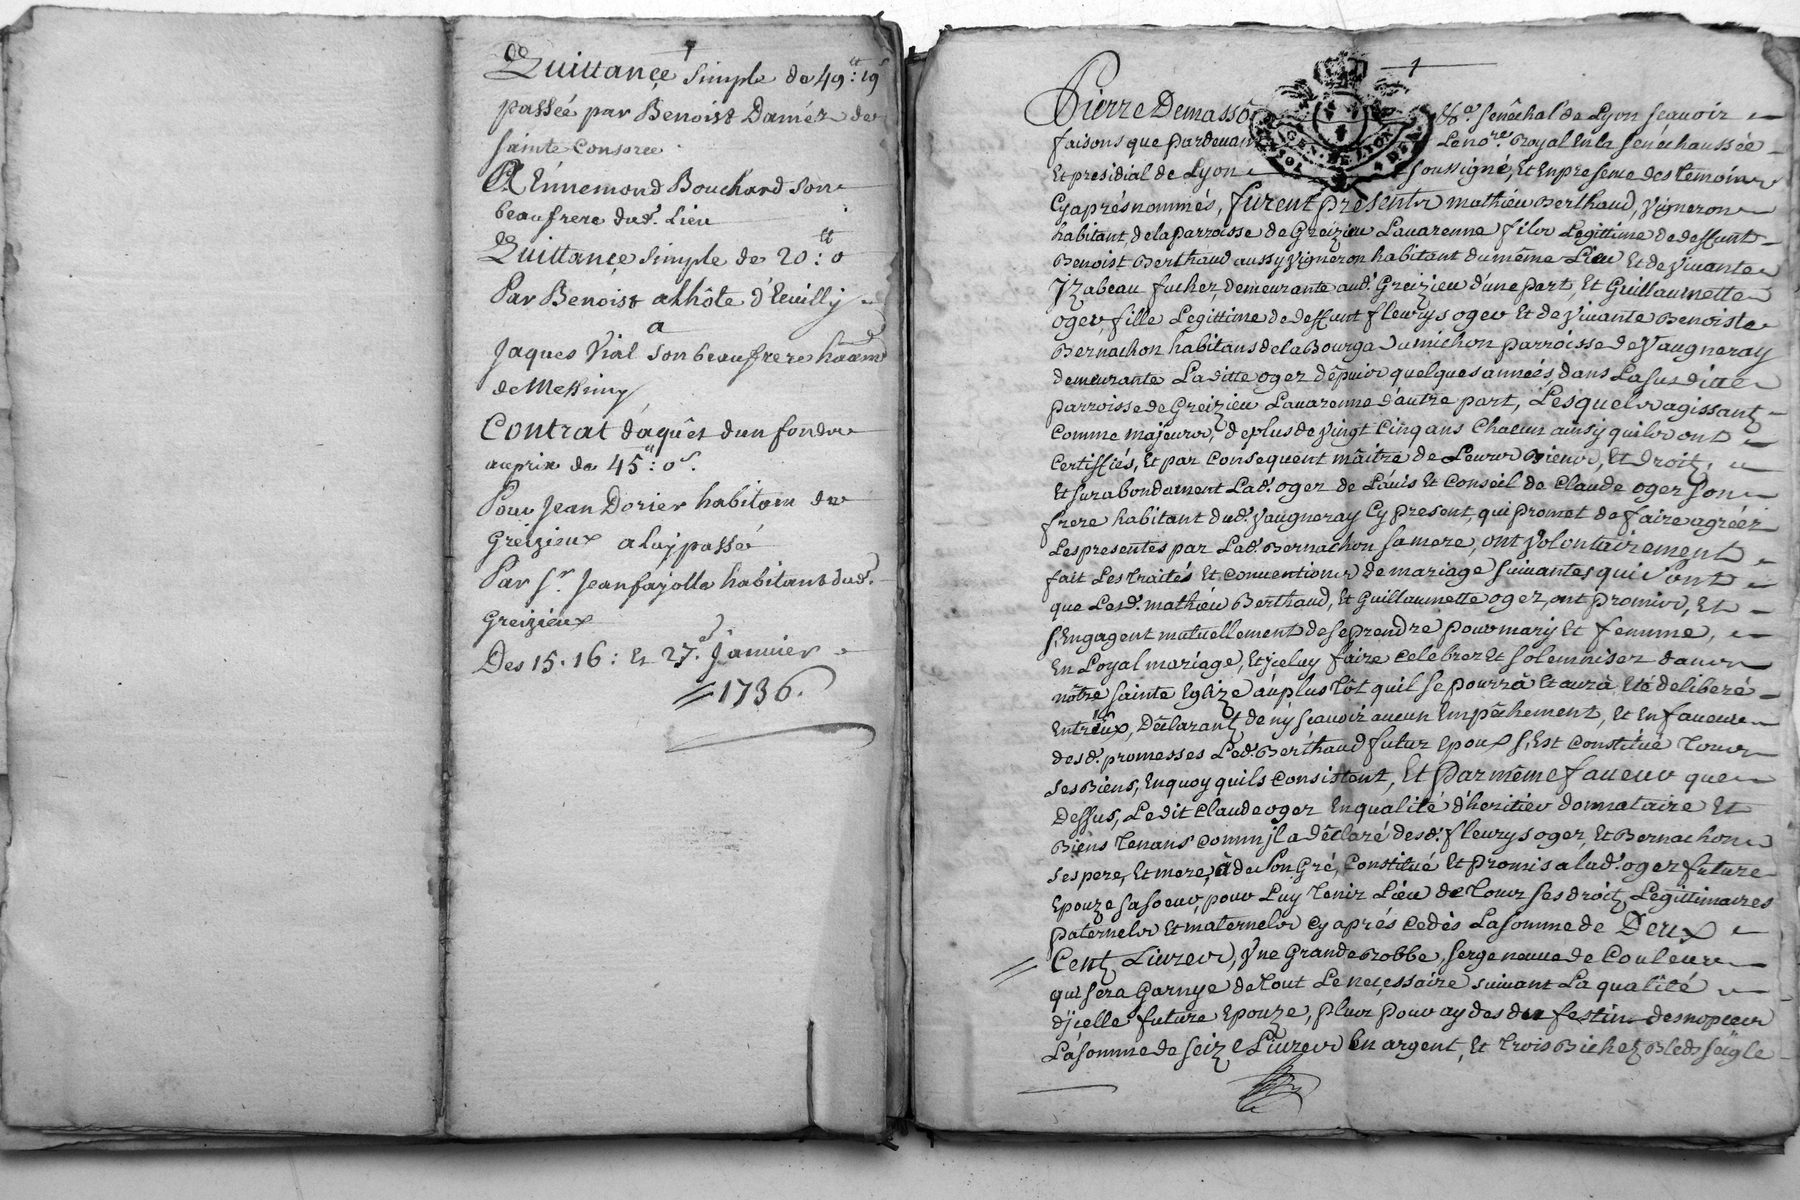 Quittance simple de 49ᵗᵗ: 19ˢ
passée par Benoist Daméz de
sainte Consorce
A Ennemond Bouchard son
beaufrere dud.ᵗ Lieu
Quittance simple de 20ᵗᵗ: 0
Par Benoist alhôte d'Eeuilly
a
Jaques Vial son beaufrere
de Messimy
Contrat dáquêt dun fonds
au prix de 45ᵗᵗ: 0ˢ.
Pour Jean Dorier habitant de
Greizieux a luy passé
Par S.ʳ Jean fayolle habitant dud.ᵗ
Greizieux
Des 15. 16: Et 27.ᵉ Janvier
1736.
Pierre Demasso Sénéchal de Lyon scavoir
faisons que pardevant Le no.ʳᵉ Royal En la sénéchaussée
Et presidial de Lyon soussigné, Et En presence des témoins
Cy aprés nommés, furent présents mathieu Berthaud, vigneron
habitant de la parroisse de Greizieu Lavarenne fils Legittime de deffunt
Benoist Berthaud aussy vigneron habitant du même Lieu Et de vivante
Yzabeau fucher, demeurante aud.ᵗ Greizieu d'une part, Et Guillaumette
oger, fille Legittime de deffunt fleurys oger Et de vivante Benoiste
Bernachon habitans de la Bourga Dumichon parroisse de Vaugneray
demeurante Laditte oger dépuis quelques années, dans La susditte
parroisse de Greizieu Lavarenne d'autre part, Lesquels agissant
Comme majeurs, de plus de vingt Cinq ans Chacun ainsy quils ont
Certiffiés, Et par Consequent maître de Leurs Biens, Et Droitz,
Et surabondament Lad.ᵗ oger de L'avis Et Conseil de Claude oger son
frere habitant dud.ᵗ Vaugneray Cy present, qui promet de faire agréér
Les presentes par Lad.ᵗ Bernachon sa mere, ont volontairement
fait Les traités Et Conventions de mariage suivantes qui sont
que Lesd.ᵗ mathieu Berthaud, Et Guillaumette oger, ont promis, Et
s'Engagent mutuellement de se prendre pour mary Et femme,
En Loyal mariage, Et ycelluy faire Celebrer Et solemniser dans
nôtre sainte Eglize au plus Tôt quil se pourra Et aura Eté deliberé
Entr'Eux, Déclarant de ny scavoir aucun Empêchement, Et En faveur
desd.ᵗ promesses Led.ᵗ Berthaud futur Epoux s'Est Constitué Tous
ses Biens, En quoy quils Consistent, Et par même faveur que
Dessus, Le dit Claude oger En qualité d'heritier donnataire Et
Biens Tenans comm jl a déclaré desd.ᵗ fleurys oger, Et Bernachon
ses pere, Et mere, à de son Gré, Constitué Et promis a lad.ᵗ oger future
Epouze sa soeur, pour Luy Tenir Lieu de Tous ses droitz Legittimaires
paternels Et maternels cy aprés cedés La somme de Deux
Centz Livres, Vne Grande Robbe, serge neuve de Couleur
qui sera Garnye de Tout Le necessaire suivant La qualité
d'jcelle future Epouze, plus pour aydes du festin des nopces
La somme de seize Livres En argent, Et trois Bichetz Bleds seigle